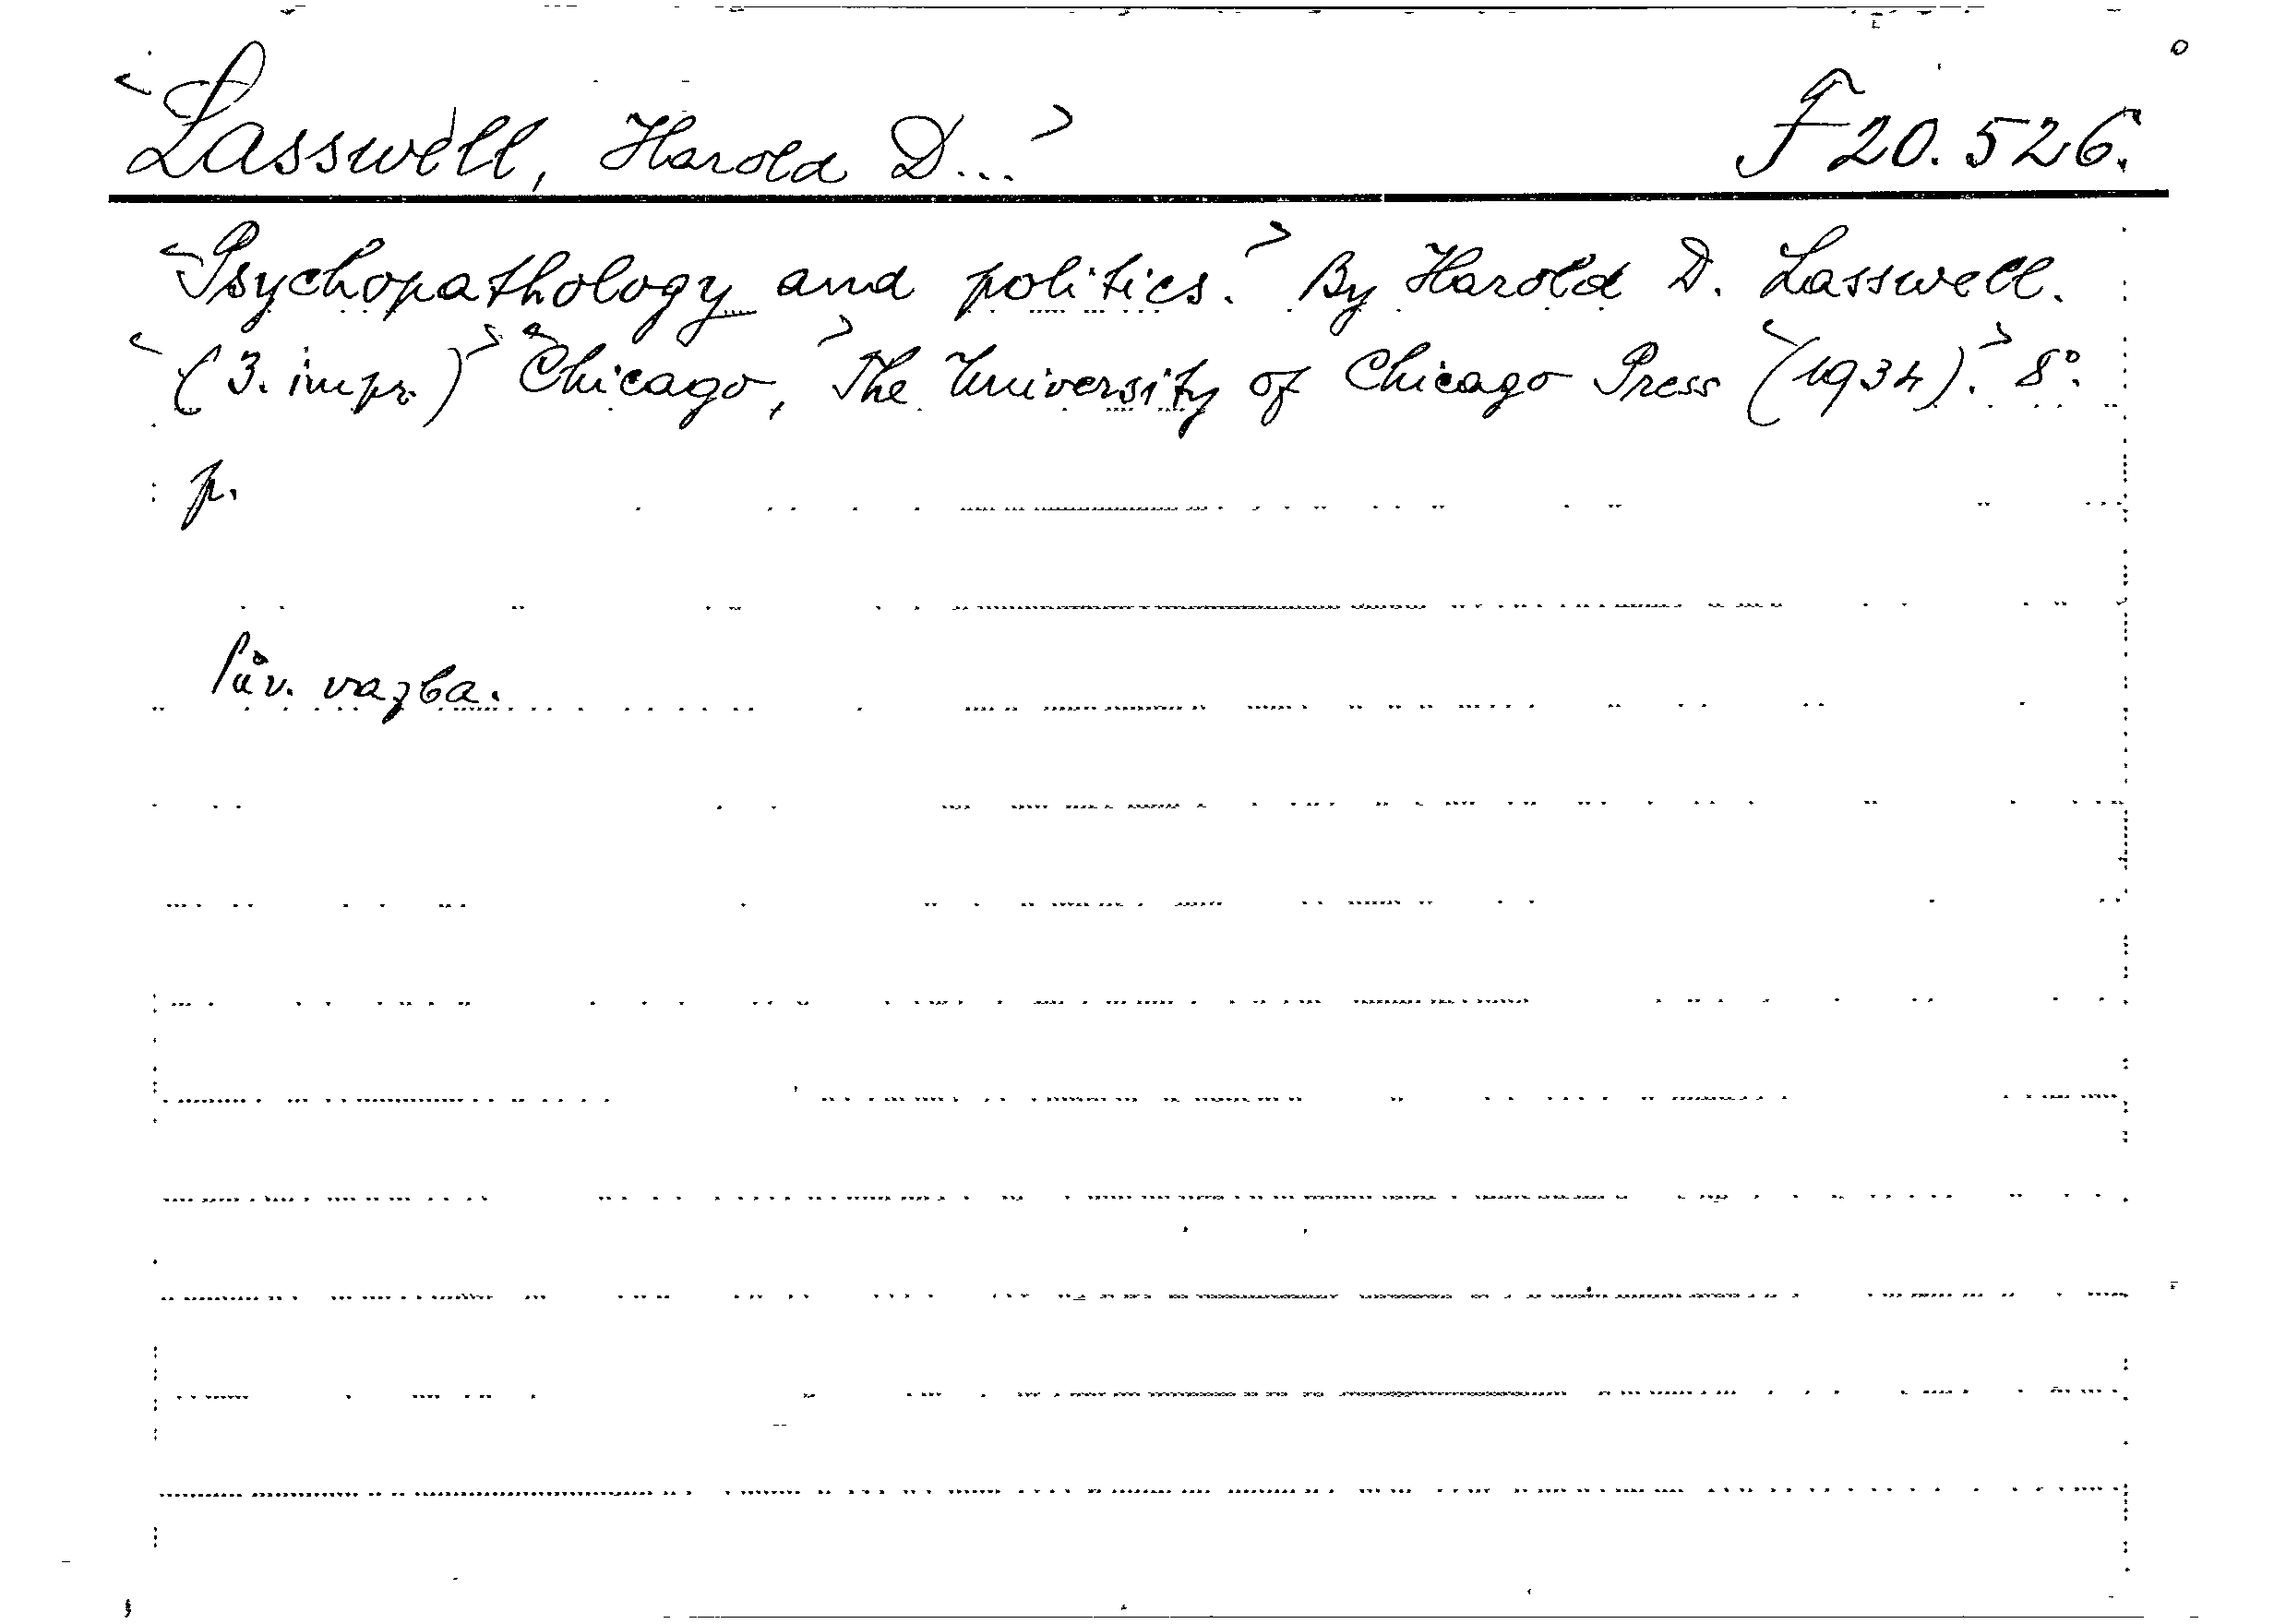 <Lasswell, Harold D...> F 20.526.
<Psychopathology and politics.> By Harold D. Lasswell.
<(3. impr.)> <Chicago,> The University of Chicago Press <(1934).> 8°.
p.
Pův. vazba.